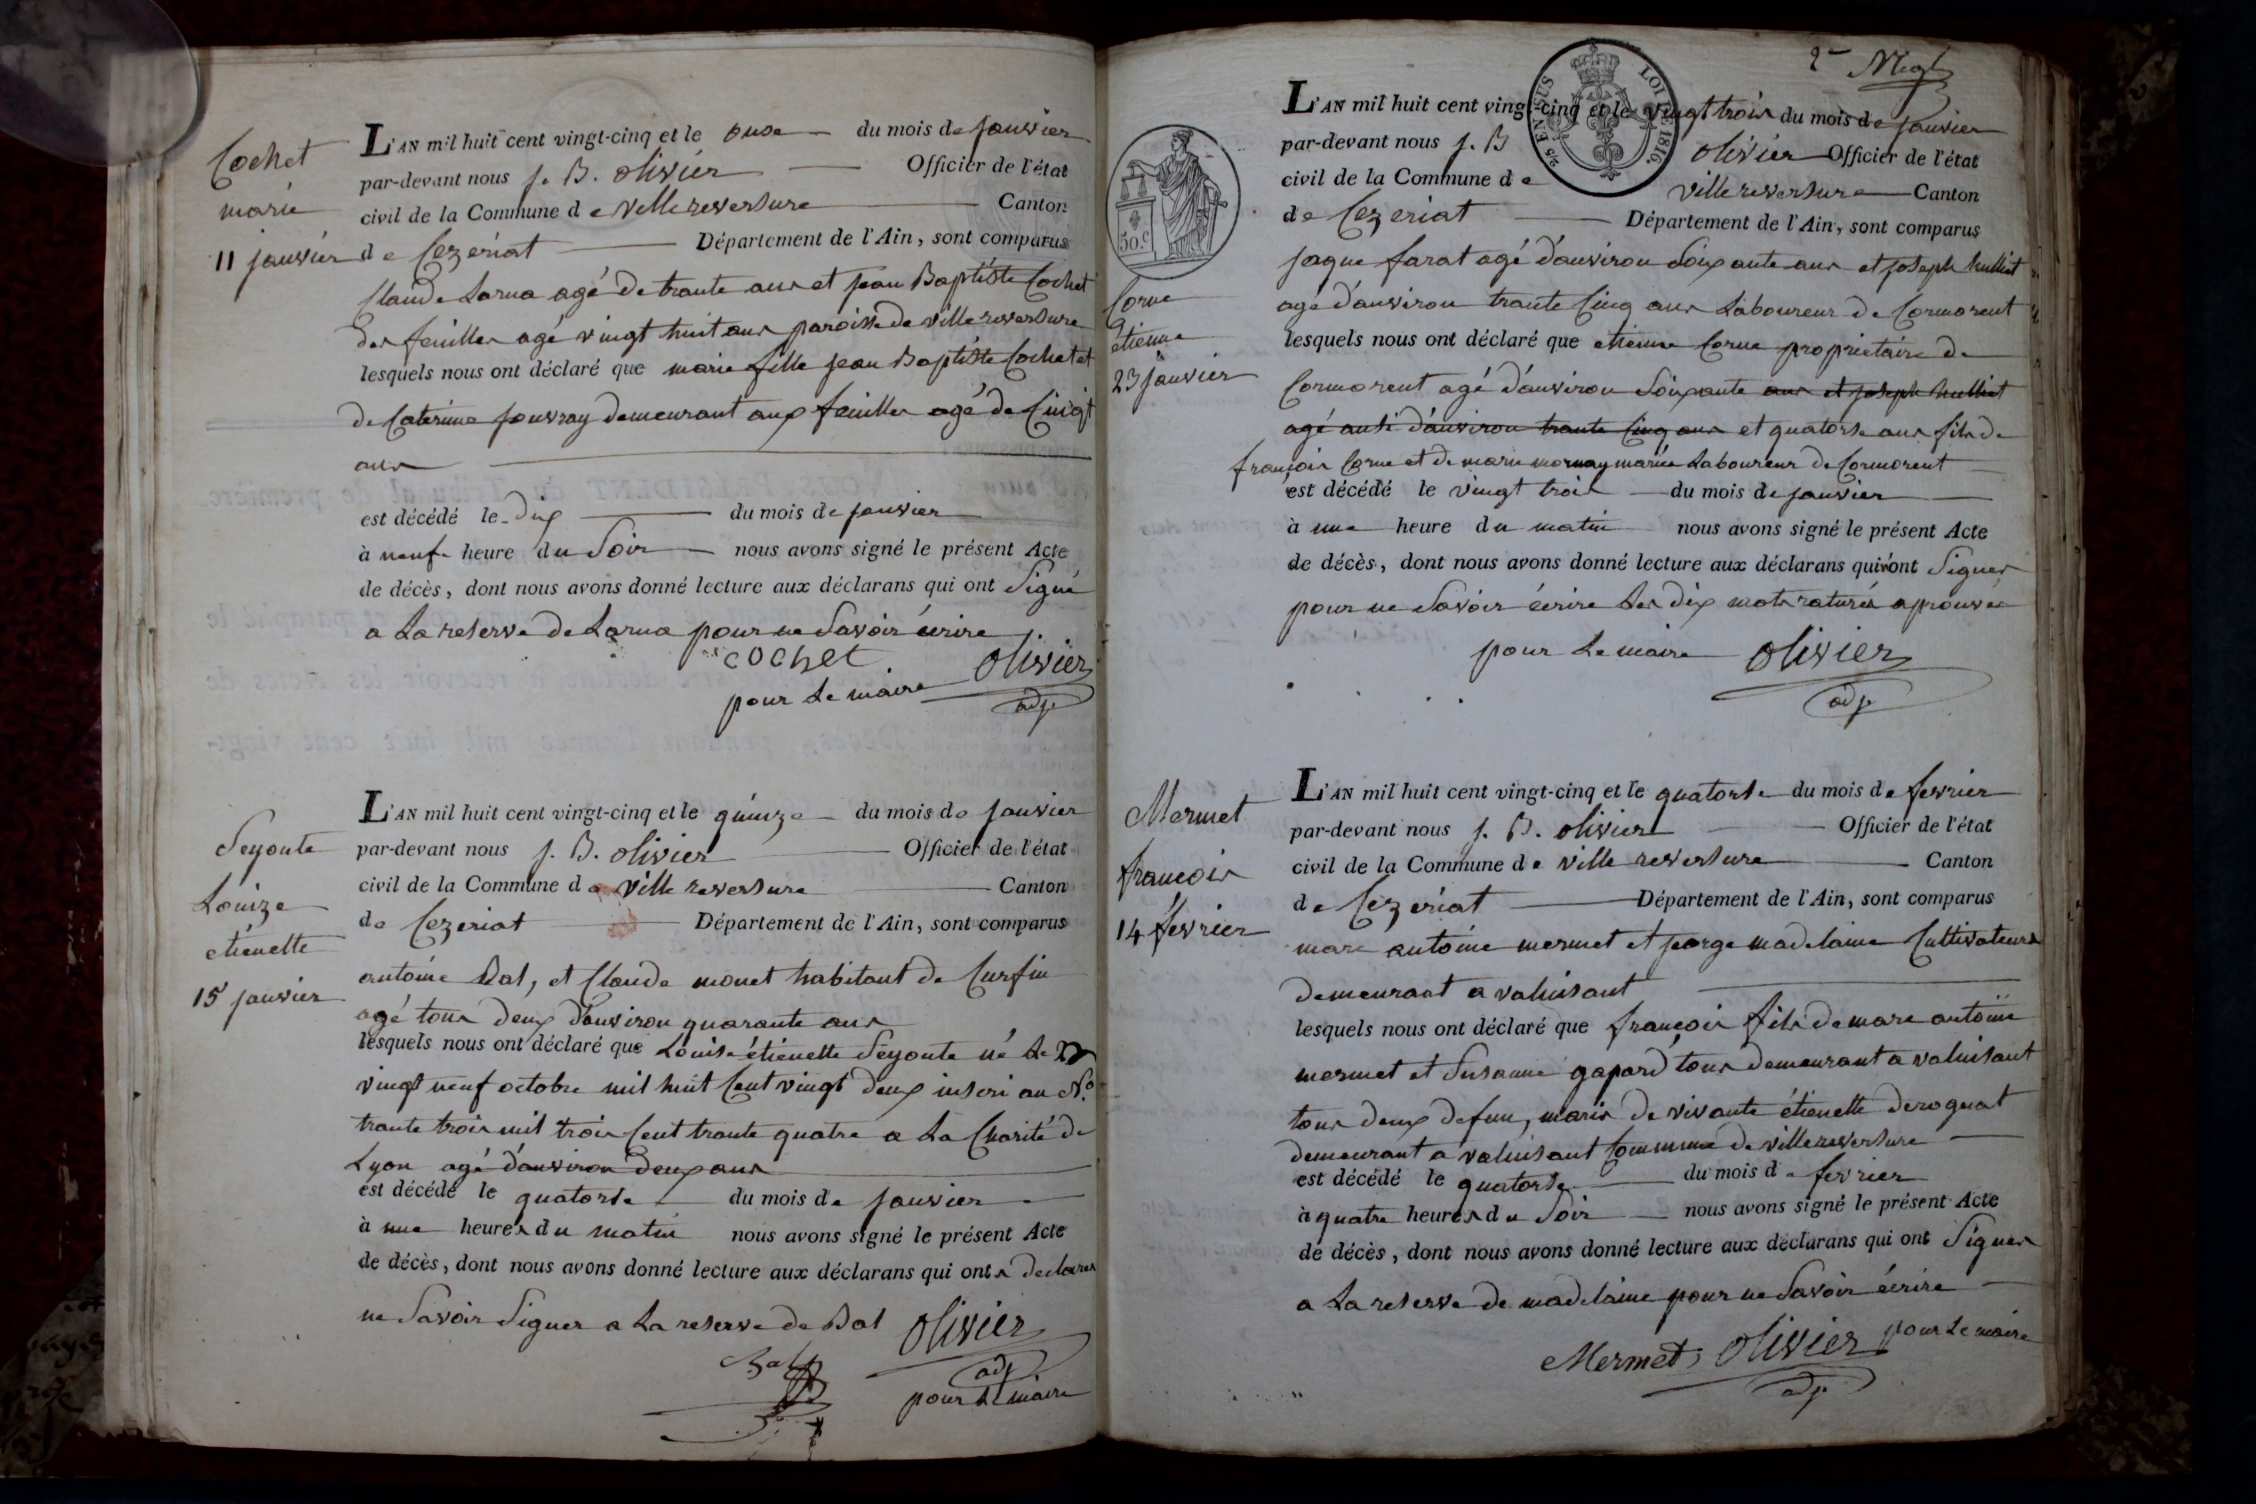 Cochet
marie
11 janvier
L'AN mil huit cent vingt-cinq et le onse du mois de janvier
par-devant nous j. B. olivier Officier de l'état
civil de la Commune de Villereversure Canton
de Cezeriat Département de l'Ain, sont comparus
Claude Larua agé de trante ans et jean Baptiste Cochet
des feuilles agé vingt huit ans paroisse de villereversure
lesquels nous ont déclaré que marie fille jean Baptiste Cochet et
de Caterine jouvray demeurant aux feuilles agé de Cinqt
ans
est décédé le dix du mois de janvier
à neufe heure du Soir nous avons signé le présent Acte
de décès, dont nous avons donné lecture aux déclarans qui ont Signé
a La reserve de Larua pour ne Savoir écrire
cochet. olivier
pour Le maire adj
Seyoute
Louize
etienette
15 janvier
L'AN mil huit cent vingt-cinq et le quinze du mois de janvier
par-devant nous j. B. olivier Officier de l'état
civil de la Commune de ville reversure Canton
de Cezeriat Département de l'Ain, sont comparus
antoine Bal, et Claude monet habitant de Curfin
agé tous deux d'anviron quarante ans
lesquels nous ont déclaré que Louise étienette Seyoute né Le
vingt neuf octobre mil huit Cent vingt deux inscri au N.o
trante trois mil trois Cent trante quatre a La Charité de
Lyon agé d'anviron deux ans
est décédé le quatorse du mois de janvier
à une heures du matin nous avons signé le présent Acte
de décès, dont nous avons donné lecture aux déclarans qui ont declarer
ne Savoir Signer a La reserve de Bal olivier
Bal adj
pour Le maire
2me
L'AN mil huit cent vingt-cinq et le vingt trois du mois de janvier
par-devant nous j. B olivier Officier de l'état
civil de la Commune de ville reversure Canton
de Cezeriat Département de l'Ain, sont comparus
25 EN SUS LOI DE 1816.
50.c
Corne
étienne
23 janvier
jaque farat agé d'anviron Soixante ans et joseph hulliet
agé d'anviron trante Cinq ans Laboureur de Cormorent
lesquels nous ont déclaré que etienne Corne propriétaire de
Cormorent agé d'anviron Soixante ans et joseph hulliet
agé ausi d'anviron trante Cinq ans et quatorse ans fils de
françois Corne et de marie mornay mariée Laboureur de Cormorent
est décédé le vingt trois du mois de janvier
à une heure du matin nous avons signé le présent Acte
de décès, dont nous avons donné lecture aux déclarans qui ont Signer
pour ne Savoir écrire Les dix mots raturés aprouvée
pour Le maire olivier
adj
Mermet
françois
14 février
L'AN mil huit cent vingt-cinq et le quatorse du mois de fevrier
par-devant nous j. B. olivier Officier de l'état
civil de la Commune de ville reversure Canton
de Cezériat Département de l'Ain, sont comparus
marc antoine mermet et jeorge madelaine Cultivateurs
demeurant a valuisant
lesquels nous ont déclaré que françois fils de marc antoine
mermet et Susanne gapard tous demeurant a valuisant
tous deux defun, maris de vivante étienette deroguat
demeurant a valuisant Commune de villereversure
est décédé le quatorse du mois de fevrier
à quatre heures du Soir nous avons signé le présent Acte
de décès, dont nous avons donné lecture aux déclarans qui ont Signer
a La reserve de madelaine pour ne Savoir écrire
Mermet, olivier pour Le maire
adj